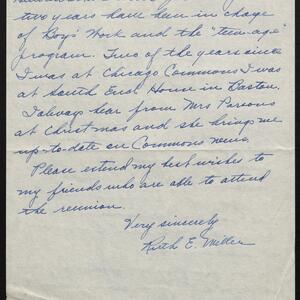 two years have been in charge
of Boy's Work and the "teen-age"
program. Two of the years since
I was at Chicago Commons I was
at South End House in Boston.
I always hear from Mrs Persons
at Christmas and she brings me
up-to-date on Commons news.
Please extend my best wishes to
my friends who are able to attend
the reunion.
Very sincerely
Ruth E. Miller